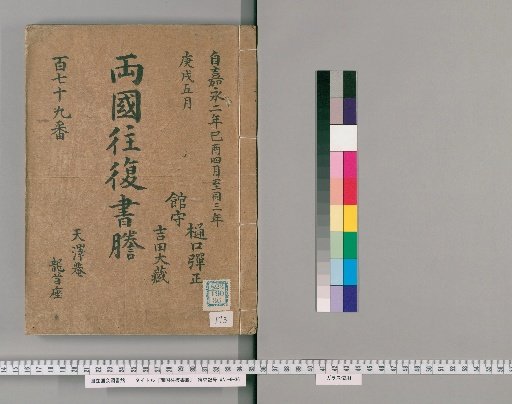 自嘉永二年己酉四月至同三年
庚戌五月
兩國往復書謄
百七十九番
館守
樋口彈正
吉田大藏
天澤菴
龍芸座
173